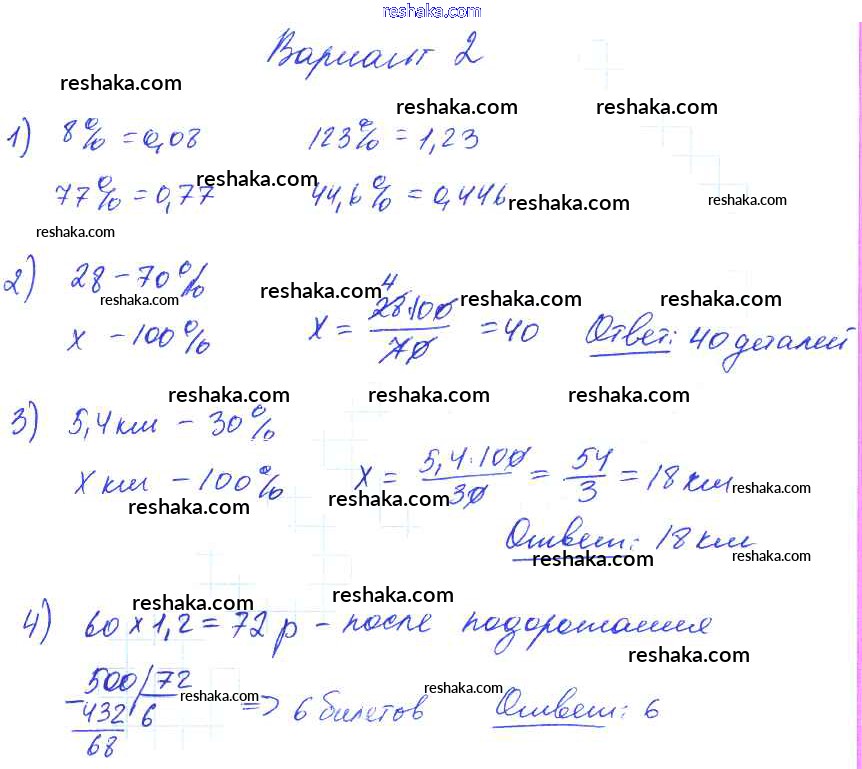 reshaka.com
Вариант 2
reshaka.com
reshaka.com reshaka.com
1) 8% = 0,08 123% = 1,23
reshaka.com
77% = 0,77 44,6% = 0,446
reshaka.com reshaka.com
reshaka.com
2) 28 - 70%
reshaka.com reshaka.com reshaka.com reshaka.com
x - 100% X = 28·100/70 = 40 Ответ: 40 деталей
4
reshaka.com reshaka.com reshaka.com
3) 5,4 км - 30%
X км - 100% X = 5,4·100/30 = 54/3 = 18 км
reshaka.com reshaka.com reshaka.com
Ответ: 18 км
reshaka.com reshaka.com
reshaka.com reshaka.com
4) 60 × 1,2 = 72 р - после подорожания
reshaka.com
500 72
reshaka.com reshaka.com
- 432 6 => 6 билетов Ответ: 6
68